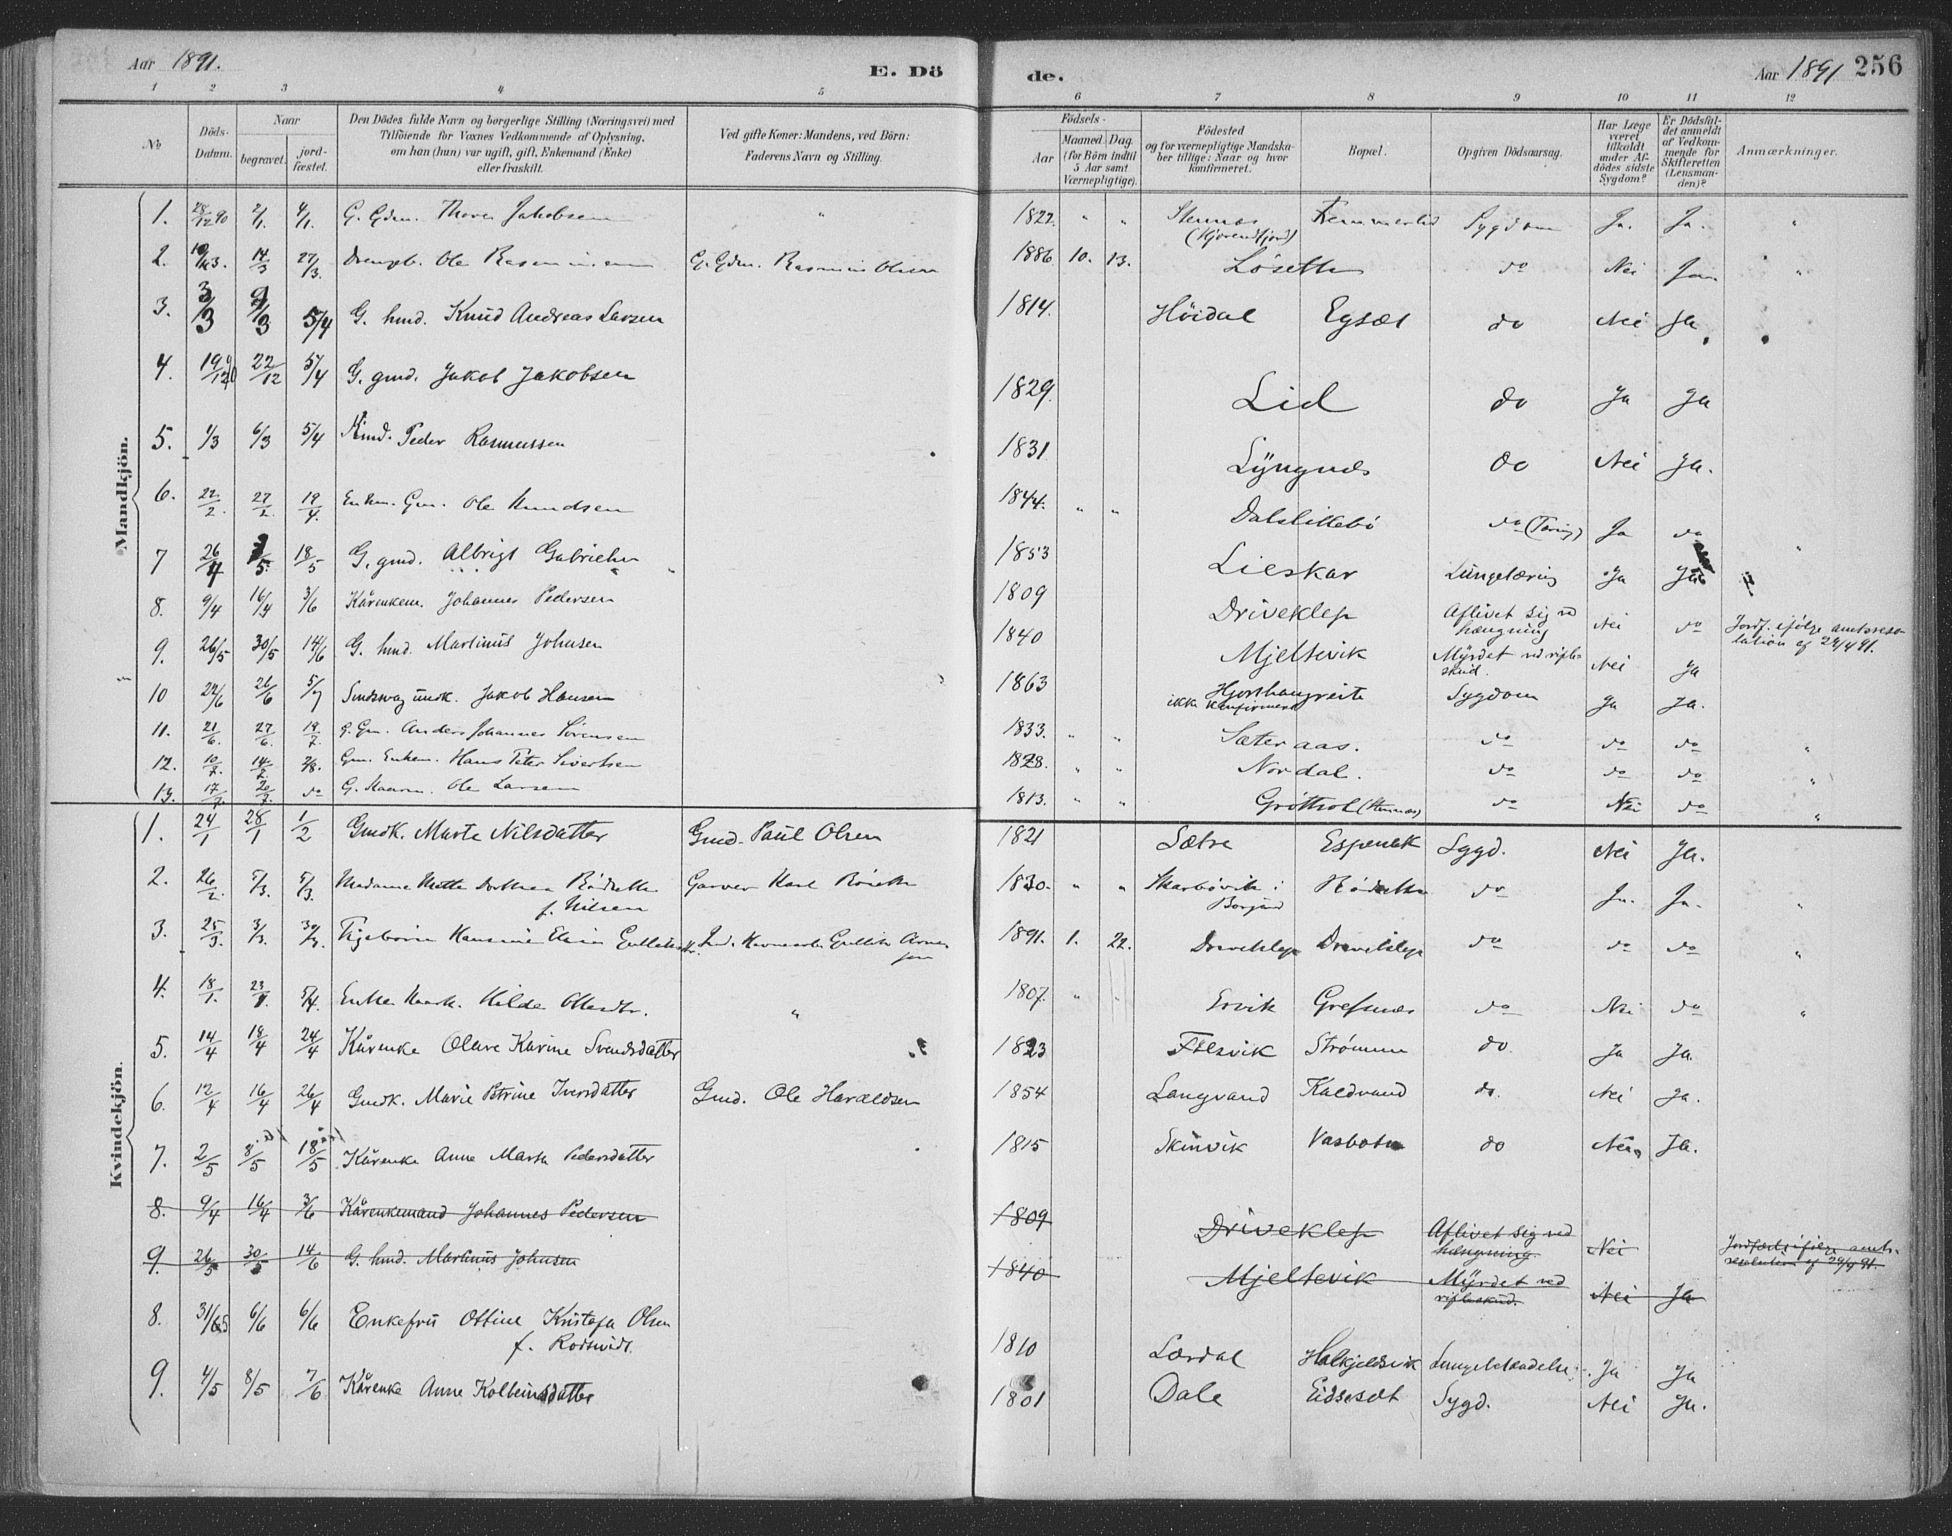 Aar 1891.
E. Dö
de.
Aar 1891
256
1 2 3 4 5 6 7 8 9 10 11 12
No
Döds-Datum.
Naar
begravet.
jord-fæstet.
Den Dödes fulde Navn og borgerlige Stilling (Næringsvei) med
Tilföiende for Voxnes Vedkommende af Oplysning,
om han (hun) var ugift, gift, Enkemand (Enke)
eller fraskilt.
Ved gifte Koner: Mandens, ved Börn:
Faderens Navn og Stilling.
Födsels-
Aar
Maaned. Dag.
(for Börn indtil
5 Aar samt
Værnepligtige).
Födested
og for værnepligtige Mandska-
ber tillige: Naar og hvor
konfirmeret.
Bopæl.
Opgiven Dödsaarsag.
Har Læge
været
tilkaldt
under Af-
dödes sidste
Sygdom?
Er Dödsfal-
det anmeldt
af Vedkom-
mende for
Skifteretten
(Lensman-
den)?
Anmærkninger.
Mandkjön.
1. 28/12 90 2/1. 4/1. G. Gdm. Thore Jakobsen " 1822. " " Stennes (Hjørendfjord) Remmerlid Sygdom Ja. Ja. "
2. 14/3 27/3. Drengeb. Ole Rasmussen G. Gdm. Rasmus Olsen 1886 10. 13. Løseth do Nei Ja "
3. 3/3 9/3 5/4 G. hmd. Knud Andreas Larsen 1814. Höidal Egsæt do Nei Ja
4. 19/12 90 22/12 5/4 G. gmd. Jakob Jakobsen 1829. Lid do Ja Ja
5. 1/3 6/3 5/4 Kmd. Peder Rasmussen 1831 Lyngnes do Nei Ja.
6. 22/2. 27/2. 19/4. Enkm. Gm. Ole Knudsen 1844. " " Dalslillebö do (Tæring) Ja do "
7 26/4 3/5. 18/5 G. gmd. Albrigt Gabrielsen 1853 Lieskar Lungetæring Ja Ja
8. 9/4 16/4 3/6 Kårenkem. Johannes Pedersen 1809 Driveklep Aflivet sig ved hængning Nei do Jordf. ifølge amtsreso-lution af 29/4 91.
9. 26/5 30/5 14/6 G. hmd. Martinus Johnsen 1840 Mjeltevik Myrdet ved rifle-skud. Nei Ja
10 22/6 26/6 5/7 Sindssvag undk. Jakob Hansen 1863 Hjorthaugreite ikke konfirmert Sygdom Ja Ja.
11. 21/6. 27/6. 19/7. G. Gm. Anders Johannes Sörensen 1833. " " Sæteraas. do do do "
12. 10/7. 14/7. 2/8. Gm. Enkem. Hans Peter Sivertsen 1828. " " Nordal. do do do "
13. 17/7. 20/7. do G. Kaarm. Ole Larsen 1813. " " (Stennes) do Nei do "
Kvindekjön.
1. 24/1 28/1 1/2 Gmdk. Marte Nilsdatter Gmd. Paul Olsen 1821 Sætre Espenek Sygd. Nei Ja.
2. 26/2. 5/3. 5/3. Madame Mette Dorthea Rödseth f. Nilsen Garver Karl Röseth 1830. " " Skarbövik i Borgund Rödseth do Ja. Ja. "
3. 25/3. 3/3. 30/3. Pigebarn Hansine Elise 1891. 1. 22. Driveklep Driveklep do do do "
4. 18/1. 23/1. 5/4. Enke Kaark. Hilde Olsdtr. " 1807. " " Ervik Grefsnæs do Nei do "
5. 14/4 18/4 24/4 Kårenke Olave Karine Svendsdatter 1823 Filsvik Strömmen do. Ja Ja.
6. 12/4 16/4 26/4 Gmdk. Marie Petrine Iversdatter Gmd. Ole Haraldsen 1854 Langvand Kaldvand do. Nei Ja.
7. 2/5 8/5 18/5 Kårenke Anne Marta Pedersdatter 1815 Skinvik Vasbotn do Nei Ja.
8. 9/4 16/4 3/6 Kårenkemand Johannes Pedersen 1809 Driveklep Aflivet sig ved hængning Nei Jordfæstet ifølge amts-resolution af 29/4 91.
9. 26/5 30/5 14/6 G. hmd. Martinus Johnsen 1840 Mjeltevik Myrdet ved rifleskud. Nei Ja
8. 31/5 6/6 6/6 Enkefru Ottine Kristofa Olsen f. Rodtwidt. 1810 Lærdal Halkjeldsvik Lungebetændelse. Ja Ja
9. 4/5 8/5 7/6 Kårenke Anne Kolbeinsdatter 1801 Dale Eidsesdt Sygd. Nei Ja.